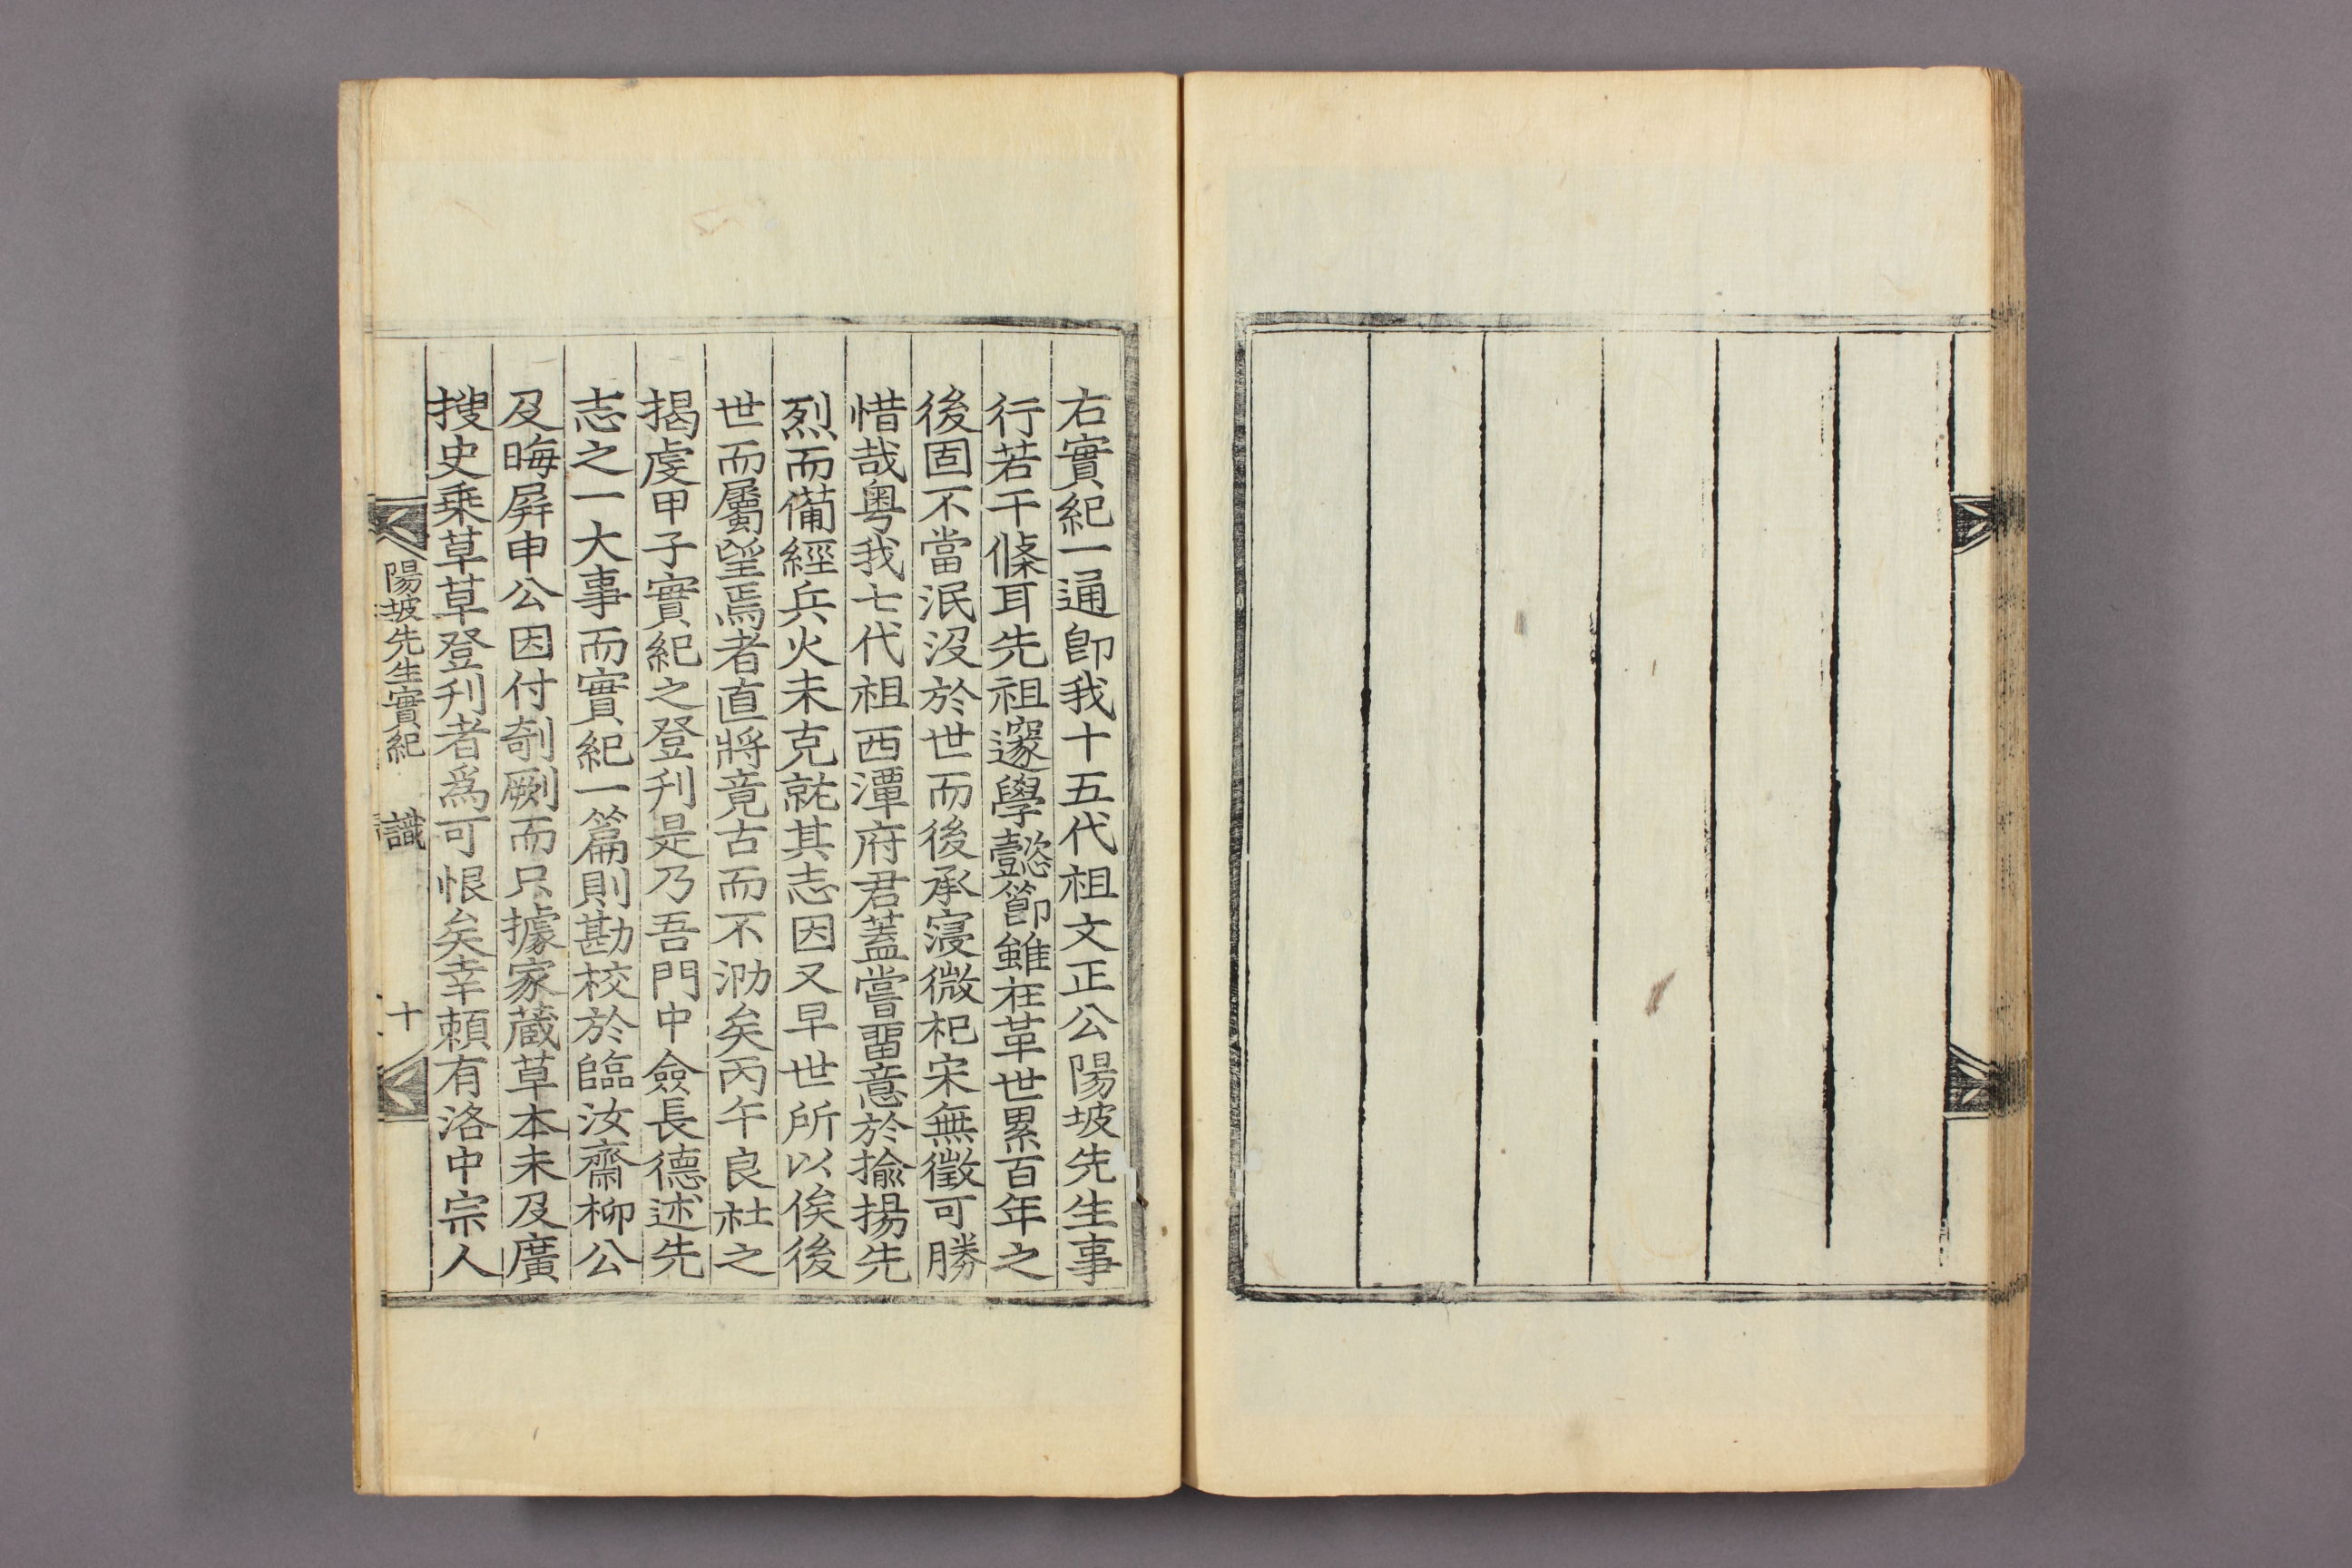 右實紀一通卽我十五代祖文正公陽坡先生事
行若干條耳先祖邃學懿節雖在革世累百年之
後固不當泯沒於世而後承寖微杞宋無徵可勝
惜哉粤我七代祖西潭府君蓋嘗留意於揄揚先
烈而備經兵火未克就其志因又早世所以俟後
世而屬望焉者直將竟古而不泐矣丙午良社之
揭虔甲子實紀之登刊是乃吾門中僉長德述先
志之一大事而實紀一篇則勘校於臨汝齋柳公
及晦屛申公因付剞劂而只據家藏草本未及廣
搜史乘草草登刊者爲可恨矣幸賴有洛中宗人
陽坡先生實紀 識 十